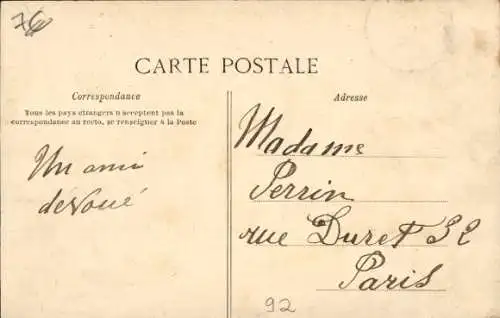 76
CARTE POSTALE
Correspondance
Tous les pays étrangers n'acceptent pas la
correspondance au recto, se renseigner à la Poste
Un ami
devoué
Adresse
Madame
Perrin
rue Duret 32
Paris
92